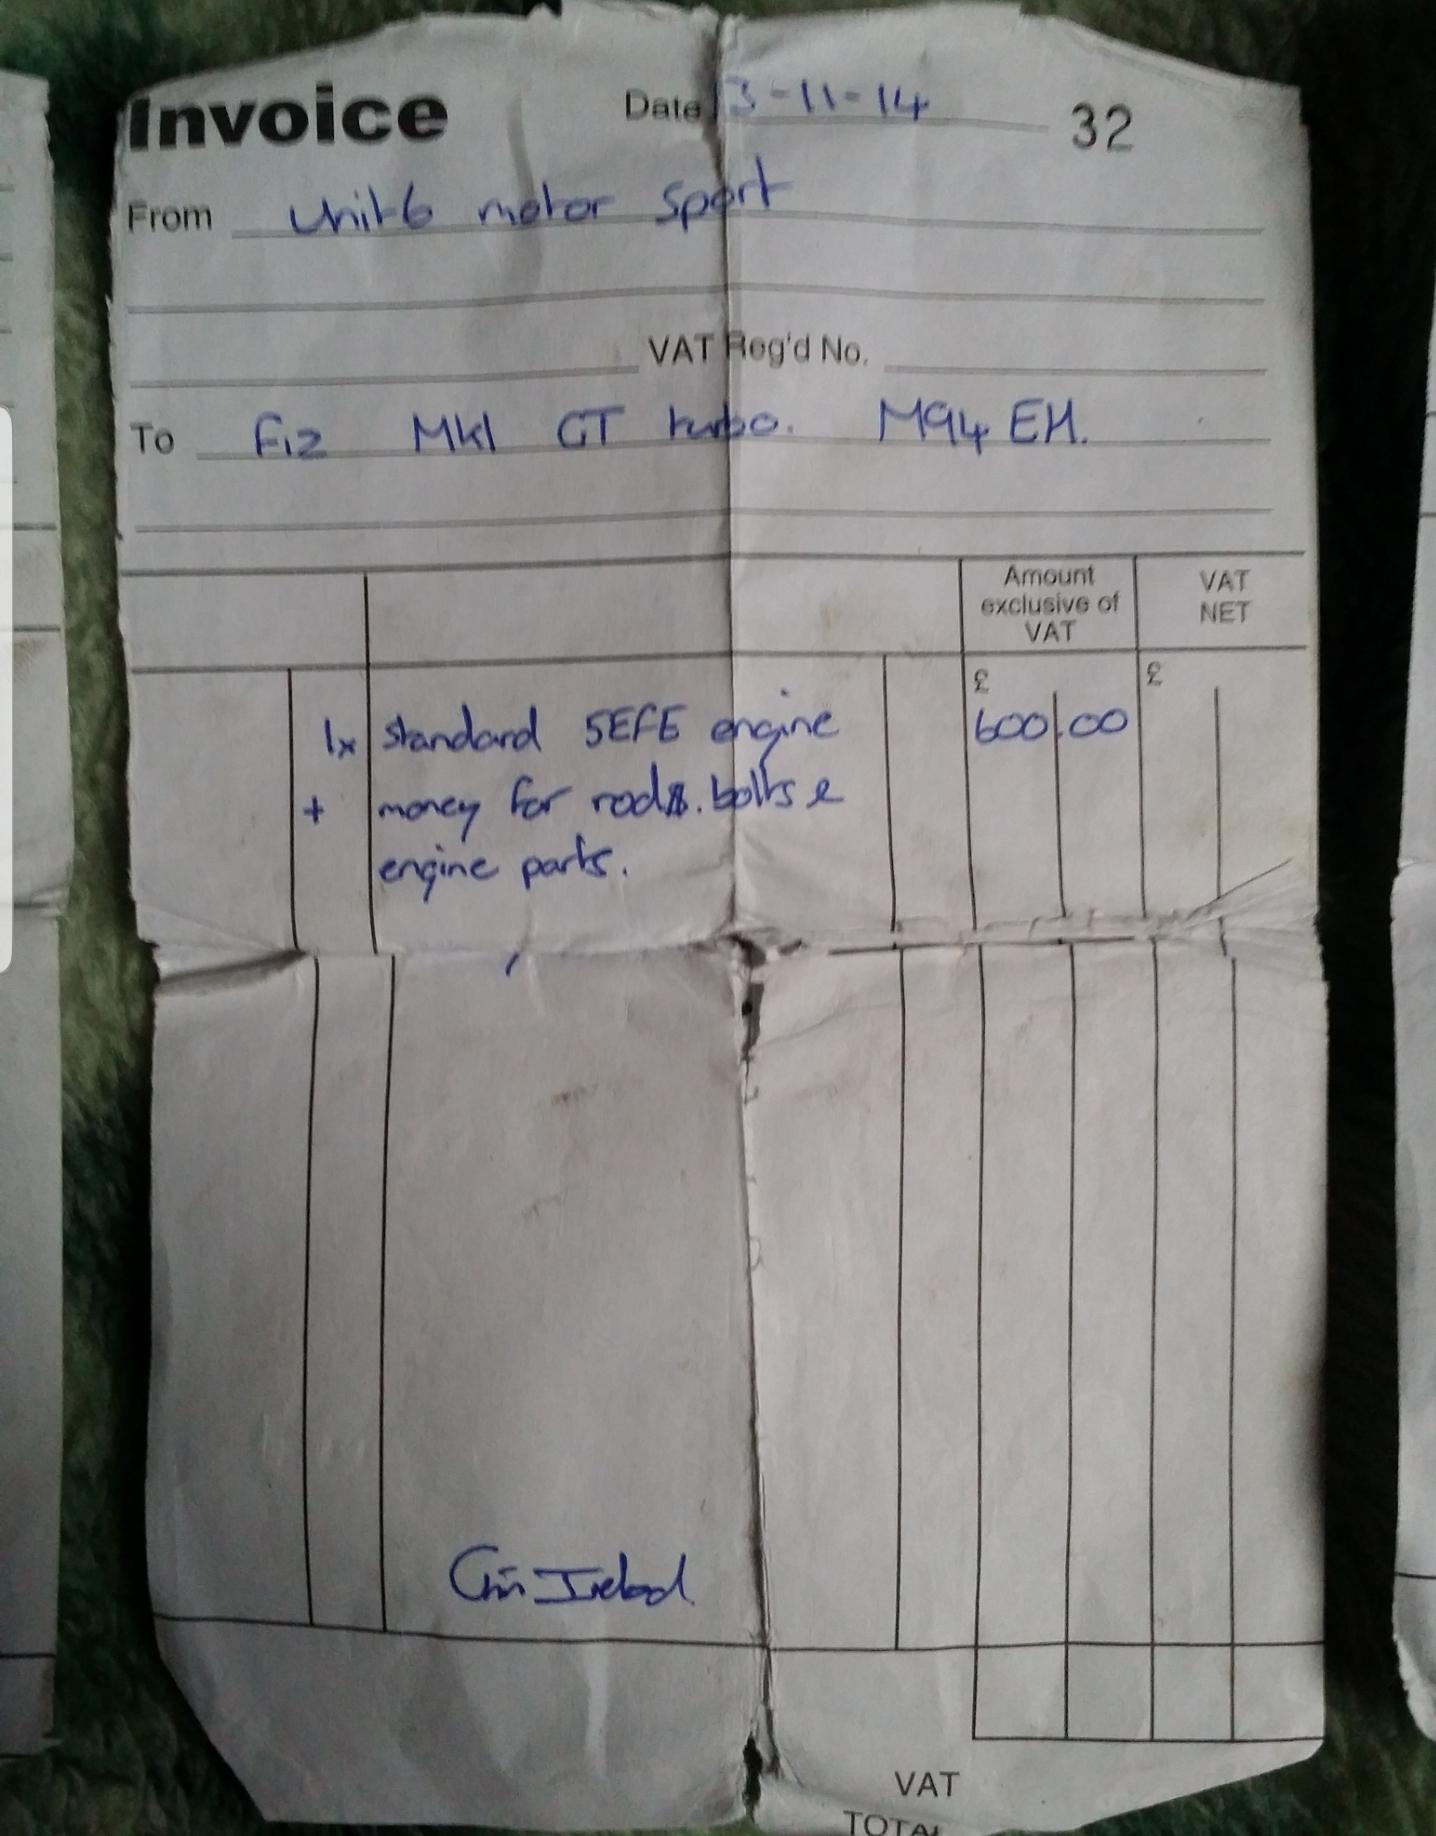 Invoice Date 3-11-14 32
From Unit 6 motor sport
VAT Reg'd No.
To Fiz Mk1 GT turbo. M94 EH.
Amount exclusive of VAT
VAT NET
£ £
1x standard 5EFE engine 600.00
+ money for rods. bolts &
engine parts.
VAT
TOTAL